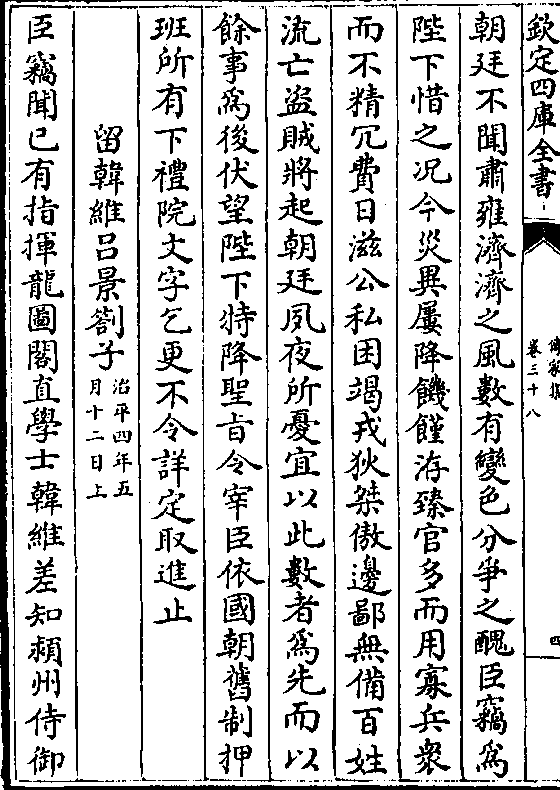 欽定四庫全書
傳家集
卷三十八
四
朝廷不聞肅雍濟濟之風數有變色分爭之醜臣竊為
陛下惜之况今災異屢降饑饉洊臻官多而用寡兵衆
而不精冗費日滋公私困竭戎狄桀傲邊鄙無備百姓
流亡盗賊將起朝廷夙夜所憂宜以此數者為先而以
餘事為後伏望陛下特降聖旨令宰臣依國朝舊制押
班所有下禮院文字乞更不令詳定取進止
留韓維吕景劄子治平四年五月十二日上
臣竊聞已有指揮龍圖閣直學士韓維差知潁州侍御